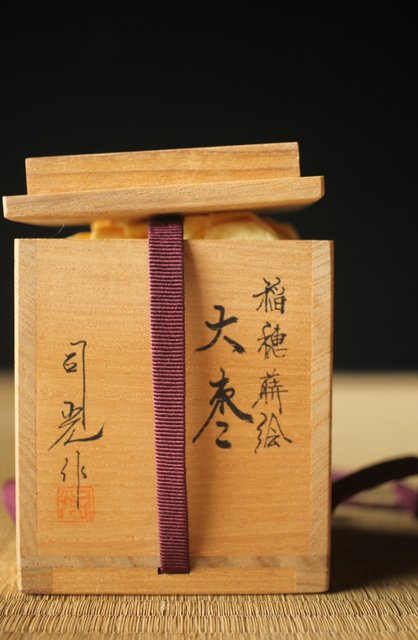 稲穂蒔絵
大棗
司光作